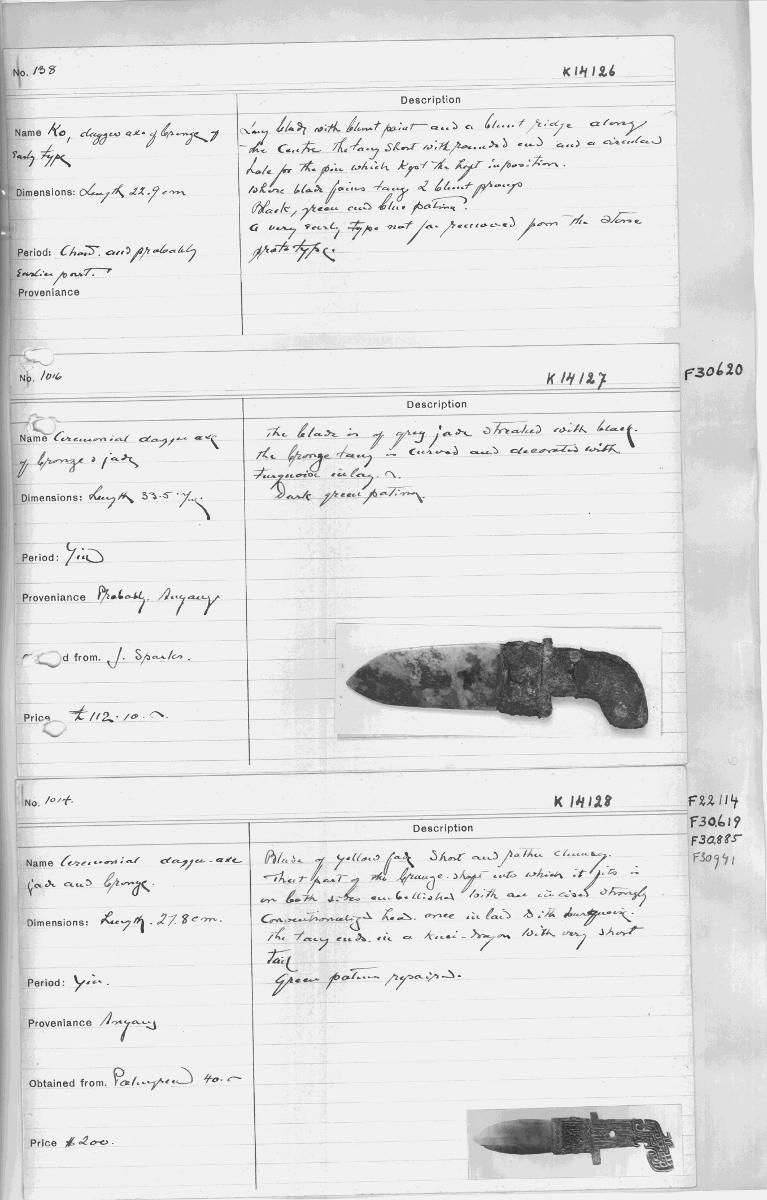 No. 138
K14126
Description
Name Ko, dagger axe of bronze of
Early type
Dimensions: Length 22.9 cm
Period: Chou. and probably
Earlier part.
Proveniance
Long blade with blunt point and a blunt ridge along
the centre. The tang short with rounded end and a circular
hole for the pin which kept the haft in position.
Where blade joins tang 2 blunt prongs
Black, green and blue patina.
a very early type not far removed from the stone
prototype.
No. 1016
K14127
F30620
Description
Name Ceremonial dagger axe
of bronze & jade
Dimensions: Length 33.5
Period: Yin
Proveniance Probably. Anyang
d from. J. Sparks.
Price £112.10.
The blade is of grey jade streaked with black.
The bronze tang is curved and decorated with
turquoise inlay.
Dark green patina.
No. 1014.
K14128
F22114
F30619
F30885
F30941
Description
Name Ceremonial dagger-axe
jade and bronze.
Dimensions: Length. 27.8cm.
Period: Yin.
Proveniance Anyang
Obtained from. Palmgren 40.
Price $200.
Blade of yellow jade Short and rather clumsy.
That part of the bronze shaft into which it fits is
on both sides embellished with an incised strongly
conventionalized head. once inlaid with turquoise.
The tang ends in a kuei-dragon with very short
tail
Green patina repaired.